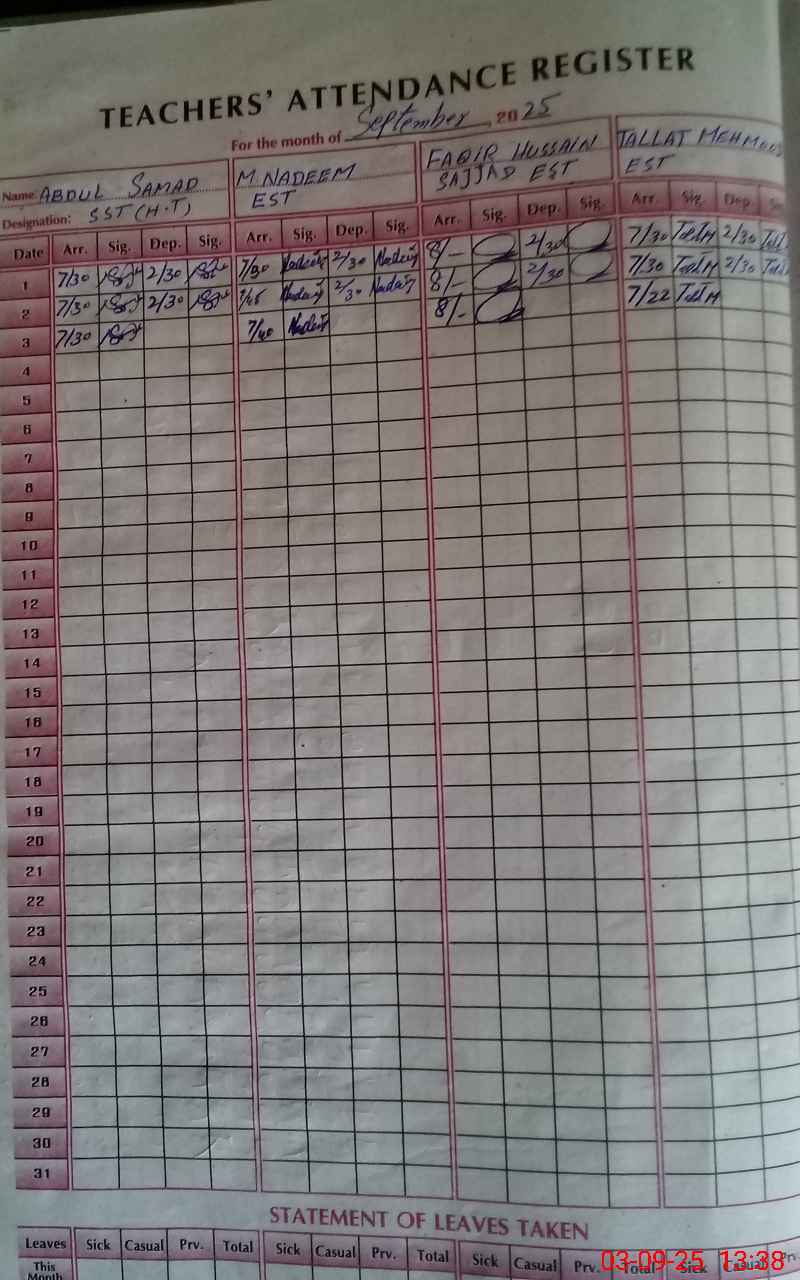 TEACHERS' ATTENDANCE REGISTER
For the month of September, 2025
Name: ABDUL SAMAD M. NADEEM FAQIR HUSSAIN TALLAT MEHMOOD
Designation: SST (H.T) EST SAJJAD EST EST
Date Arr. Sig. Dep. Sig. Arr. Sig. Dep. Sig. Arr. Sig. Dep. Sig. Arr. Sig. Dep.
1 7/30 2/30 7/30 Nadeem 2/30 Nadeem 8/- 2/30 7/30 Tallat M 2/30
2 7/30 2/30 Nadeem 2/30 Nadeem 8/- 2/30 7/30 Tallat M 2/30
3 7/30 7/40 Nadeem 8/- 7/22 Tallat M
4
5
6
7
8
9
10
11
12
13
14
15
16
17
18
19
20
21
22
23
24
25
26
27
28
29
30
31
STATEMENT OF LEAVES TAKEN
Leaves Sick Casual Prv. Total Sick Casual Prv. Total Sick Casual Prv. Total Sick
This
Month
03-09-25 13:38